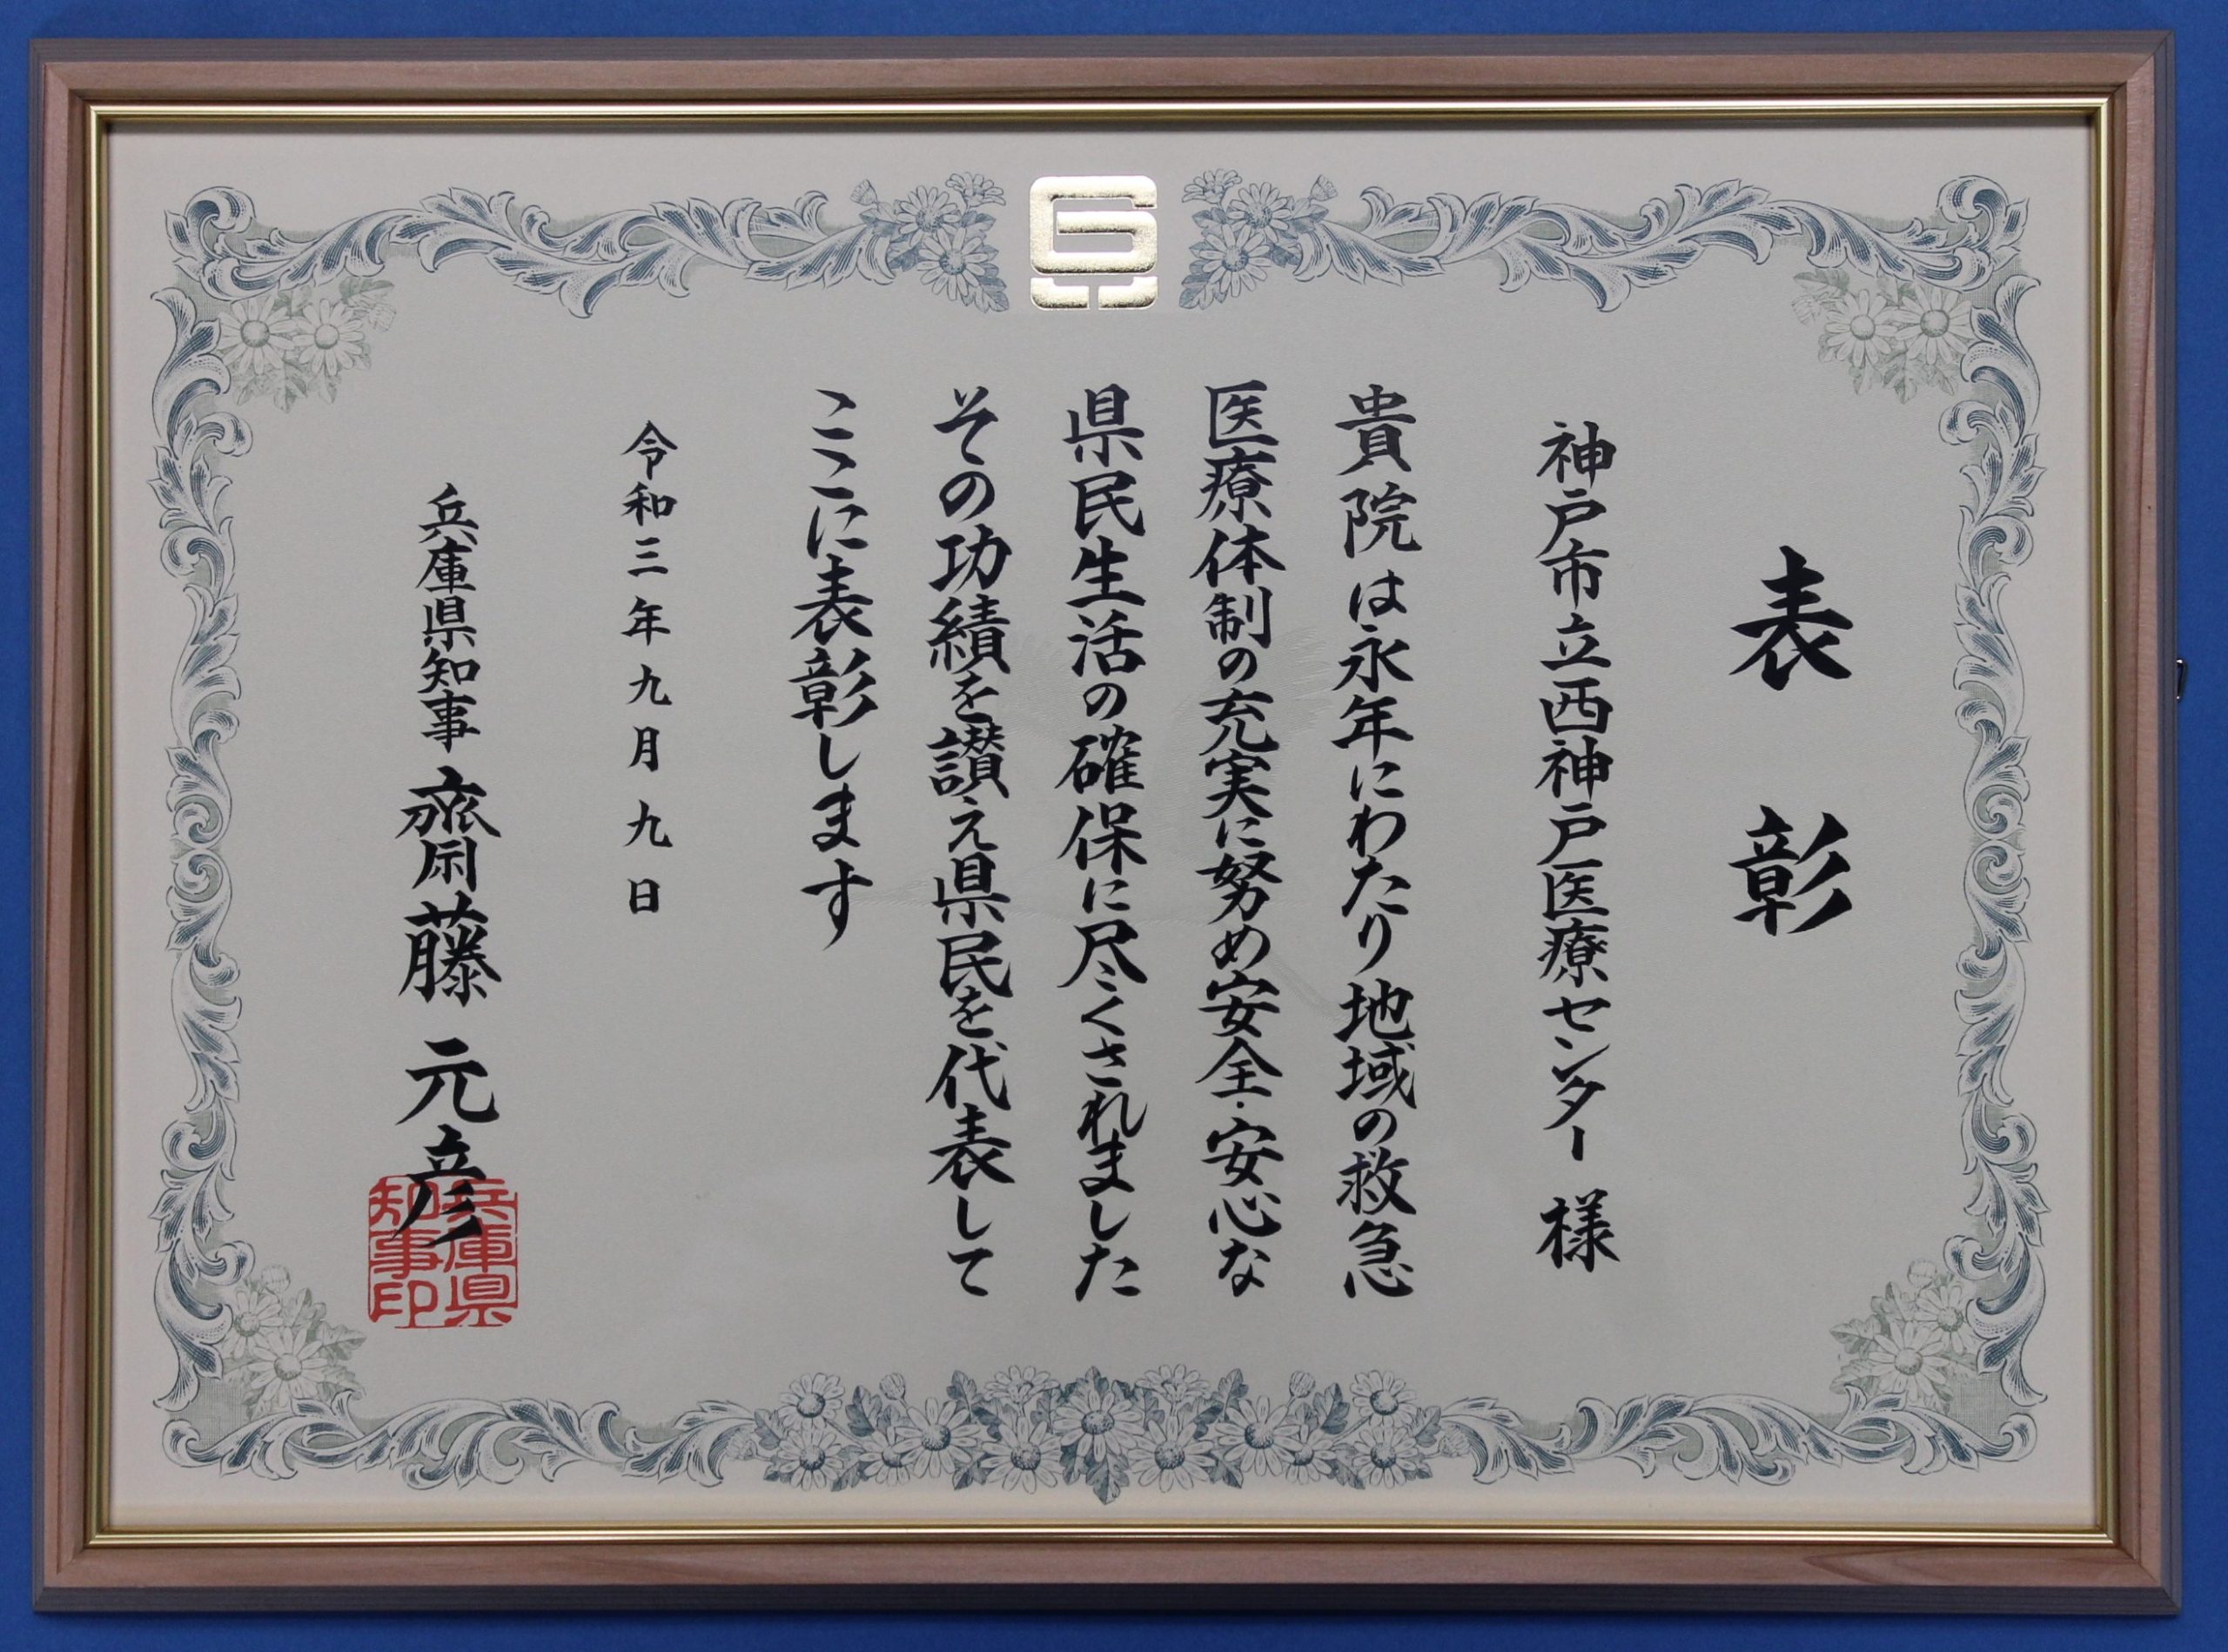 表彰
神戸市立西神戸医療センター 様
貴院は永年にわたり地域の救急
医療体制の充実に努め安全・安心な
県民生活の確保に尽くされました
その功績を讃え県民を代表して
ここに表彰します
令和三年九月九日
兵庫県知事 齋藤元彦
兵庫県
知事印